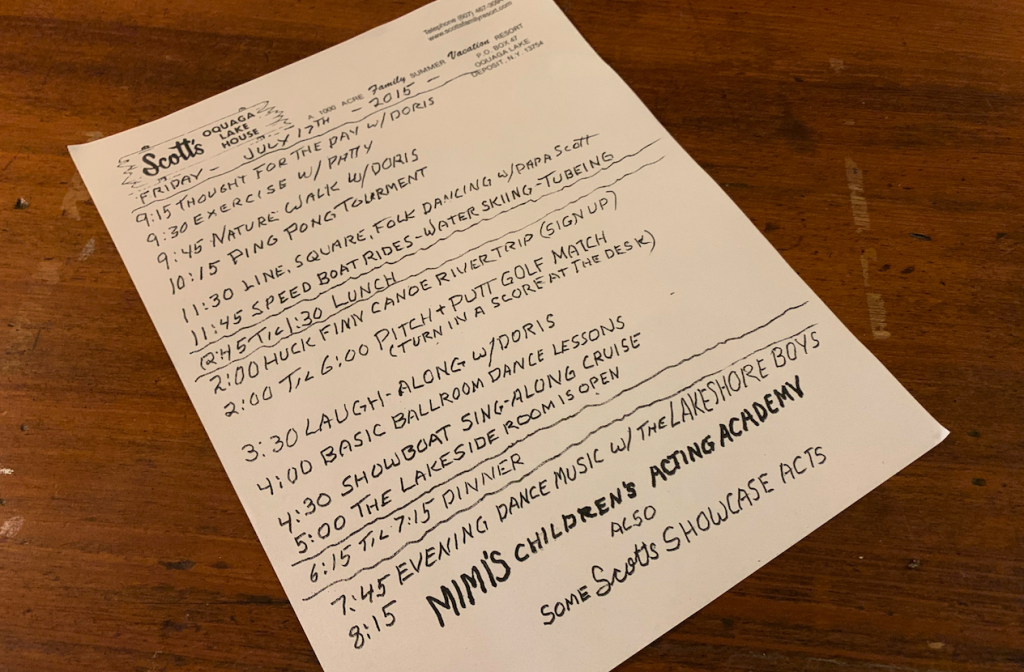 Telephone (607) 467-
www.scottsfamilyresort.com
Scott's OQUAGA LAKE HOUSE
A 1000 ACRE Family SUMMER Vacation RESORT
P.O. BOX 47
OQUAGA LAKE
DEPOSIT, N.Y. 13754
FRIDAY - JULY 17TH - 2015 -
9:15 THOUGHT FOR THE DAY W/ DORIS
9:30 EXERCISE W/ PATTY
9:45 NATURE WALK W/ DORIS
10:15 PING PONG TOURMENT
11:30 LINE, SQUARE, FOLK DANCING W/ PAPA SCOTT
11:45 SPEED BOAT RIDES-WATER SKIING-TUBEING
12:45 TIL 1:30 LUNCH
2:00 HUCK FINN CANOE RIVER TRIP (SIGN UP)
2:00 TIL 6:00 PITCH + PUTT GOLF MATCH
(TURN IN A SCORE AT THE DESK)
3:30 LAUGH-ALONG W/ DORIS
4:00 BASIC BALLROOM DANCE LESSONS
4:30 SHOWBOAT SING-ALONG CRUISE
5:00 THE LAKESIDE ROOM IS OPEN
6:15 TIL 7:15 DINNER
7:45 EVENING DANCE MUSIC W/ THE LAKESHORE BOYS
8:15 MIMI'S CHILDREN'S ACTING ACADEMY
ALSO
SOME Scotts SHOWCASE ACTS